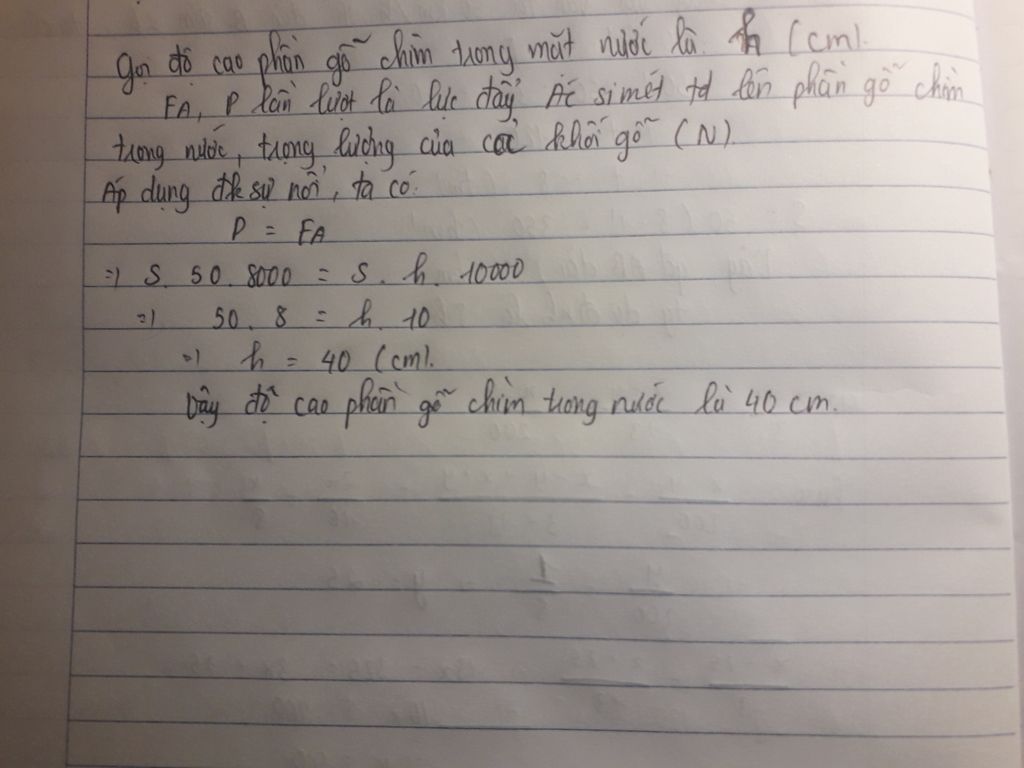 Gọi độ cao phần gỗ chìm trong mặt nước là h (cm).
FA, P lần lượt là lực đẩy Ác si mét td lên phần gỗ chìm
trong nước, trọng lượng của cả khối gỗ (N).
Áp dụng đk sự nổi, ta có:
P = FA
=) S. 50. 8000 = S. h. 10000
=) 50. 8 = h. 10
=) h = 40 (cm).
Vậy độ cao phần gỗ chìm trong nước là 40 cm.